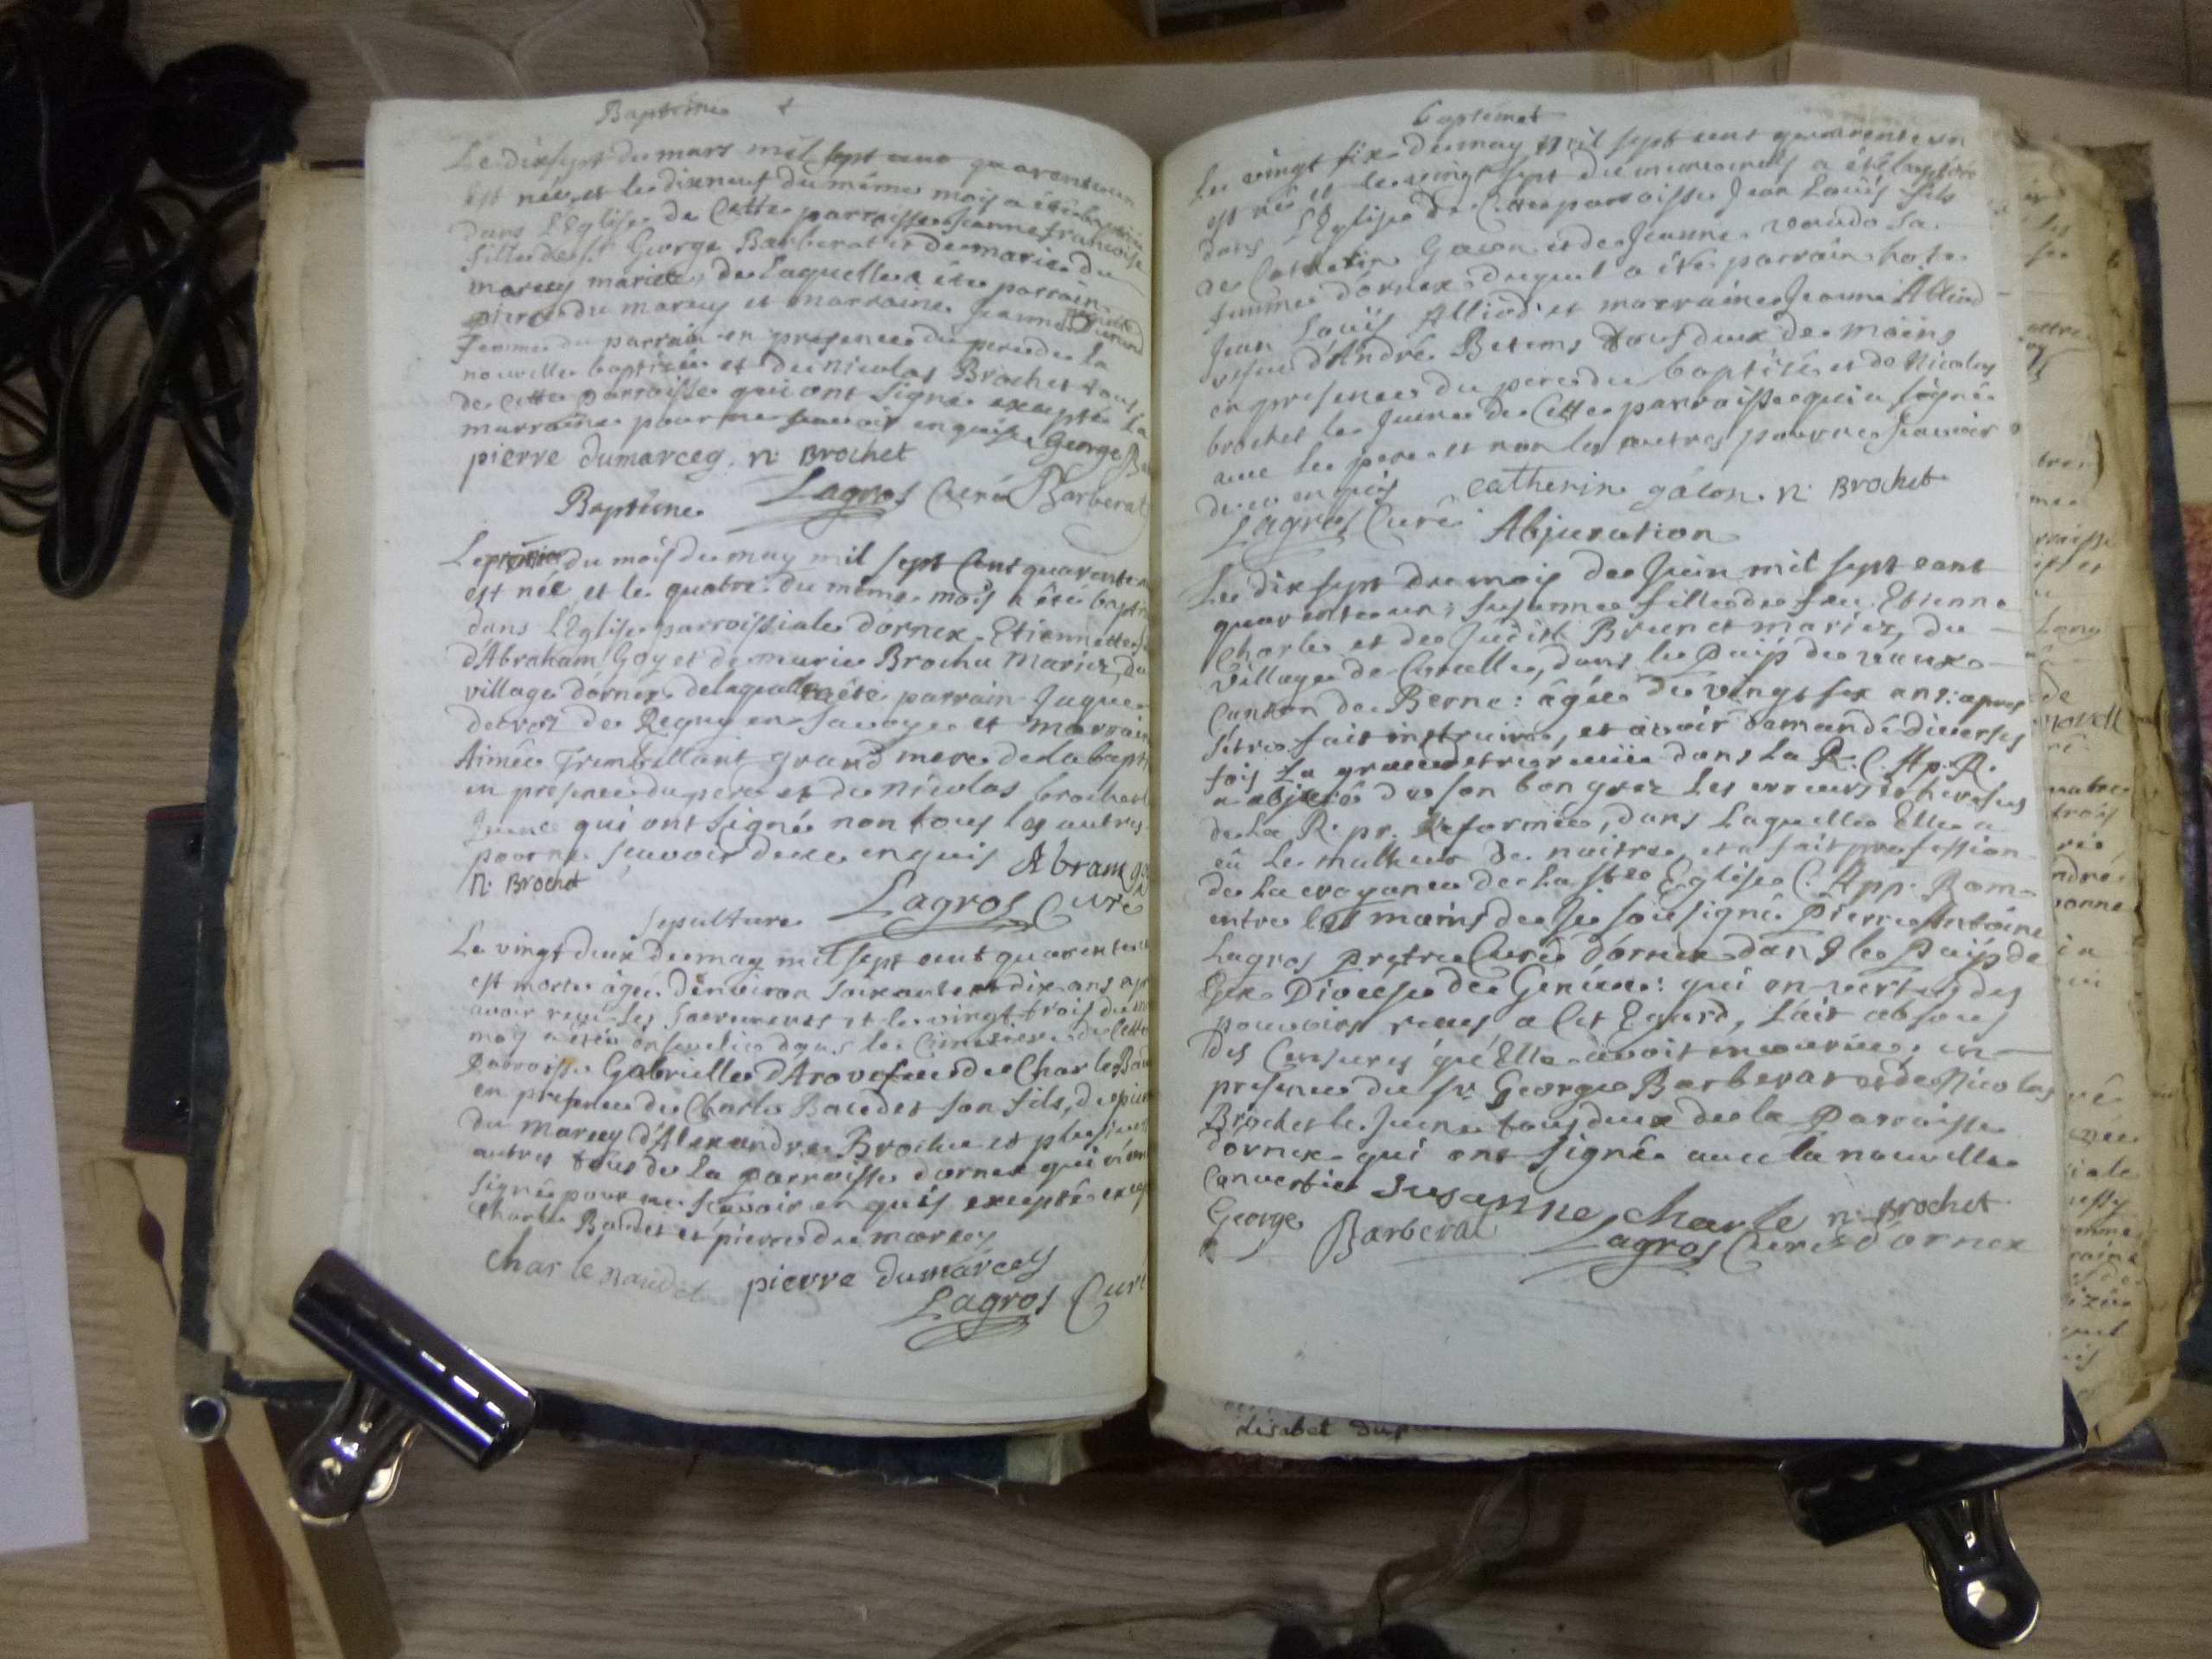 Baptême
Le dixsept du mars mil sept cent quarenteun
est née, et le dixneuf du même mois a été baptisée
dans L'Eglise de Cette parroisse Jeanne francoise
fille de sr. George Barberat et de marie du
marcey mariez, de Laquelle a été parrain
pierre du marcey et marraine Jeanne
femme du parrain en presence du pere de la
nouvelle baptisée et de nicolas Brochet tous
de Cette parroisse qui ont signé excepté La
marraine pour ne scavoir enquise George
pierre dumarceg. n: Brochet
Lagros Curé Barberat
Baptême
Le premier du mois du may mil sept Cent quarente
est née et le quatre du même mois a été bapti
dans L'Eglise parroissiale d'ornex Etiennette
d'Abraham Goy et de marie Brochu Mariez, du
village d'ornex de laquelle a été parrain Jaque
de Regny en Savoye et marrain
Aimée Trembillant grand mere de la bapt
en presence du pere et de nicolas brochet
Jeune qui ont signé non tous les autres
pour ne scavoir de ce enquis Abram go
n: Brochet
Lagros Curé
Sepulture
Le vingt deux du may mil sept cent quarente
est morte agée d'environ soixante et dix ans apr
avoir reçu les Sacrements et le vingt trois du
moy a été ensevelie dans le Cimetiere de Cette
Parroisse Gabrielle D'Aro vefue de Charle Bau
en presence de Charle Baudet son fils, de pier
du marcey d'Alexandre Brochu et plusieurs
autres tous de La parroisse d'ornex qui n'ont
signé pour ne scavoir enquis excepté
Charle Baudet et pierre du marcey
Charle naudet pierre dumarcey
Lagros Curé
baptemet
Le vingt six du may mil sept cent quarenteun
est né et le vingt sept du meme mois a été baptisé
dans L'Eglise de Cette parroisse Jean Louïs fils
de Catherin Galon et de Jeanne vaudo sa
femme d'ornex duquel a été parrain
Jean Louïs Alliod et marraine Jeanne Alliod
vefue d'André Betems tous deux de Moins
en presence du pere du baptisé et de Nicolas
brochet le Jeune de Cette parroisse qui a signé
avec Le pere et non les autres pour ne scavoir
de ce enquis Catherin galon. n: Brochet
Lagros Curé
Abjuration
Le dix sept du mois de Juin mil sept cent
quarenteun; Susanne fille de feu Etienne
Charle et de Judith Brun et mariez, du
village de dans le Paijs de vaux
Canton de Berne: âgée de vingt six ans: apres
s'être fait instruire, et avoir demandé diverses
fois La grace d'etre receuë dans La R. C. Ap. R.
a abjuré de son bon grez Les erreurs et heresies
de La R. pr. Reformée, dans Laquelle Elle a
eû Le malheur de naitre, et a fait profession
de La croyance de La Ste Eglise C. App. Rom.
entre les mains de Je sousigné Pierre Antoine
Lagros Prêtre Curé d'ornex dans le Paijs de
Gex Diocese de Genève: qui en vertu des
pouvoirs reçus a Cet Egard, L'ait absous
des Censures qu'Elle avoit encourues, en
presence du sr. George Barberat et de Nicolas
Brochet le Jeune tous deux de la Parroisse
d'ornex qui ont signé avec la nouvelle
Convertie Susanne Charle n: Brochet
George Barberat Lagros Curé d'ornex